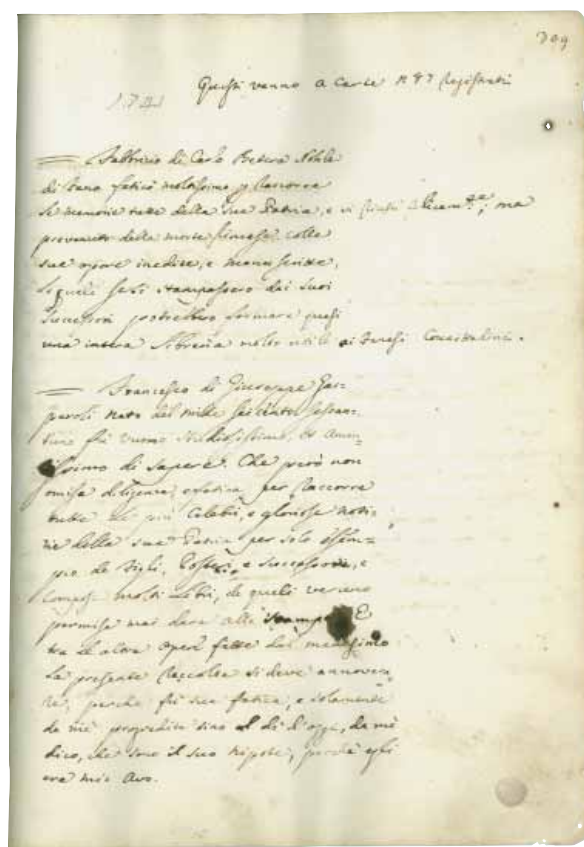 399
1741 Questi vanno a Carte n 87 Registrati
Fabbrizio di Carlo Betera Nobile
di Fano faticò moltissimo p Raccorre
le memorie tutte della sua Patria, e vi riuscì ma
prevenuto dalla morte lasciolle colle
sue opere inedite, e manuscritte,
le quali se si stampassero dai suoi
successori potrebbero formare quasi
una intera libreria molto utile ai Fanesi Concittadini.
Francesco di Giuseppe Gas-
paroli nato del mille seicento sessan-
tuno fù Uomo studiosissimo, et Aman-
tissimo di sapere. Che però non
omise diligenza, e fatica per Raccorre
tutte le più Celebri, e gloriose noti-
zie della sua Patria per solo essem-
pio de Figli, Posteri, e successori, e
Compose molti Libri, de quali veruno
permise mai dare alle stampe E
tra le altre Opere fatte dal medesimo
la presente Raccolta si deve annovera-
re, perche fù sua fatica, e solamente
da me proseguita sino al dì d'oggi, da me
dico, che sono il suo Nipote, perche egli
era mio Avo.